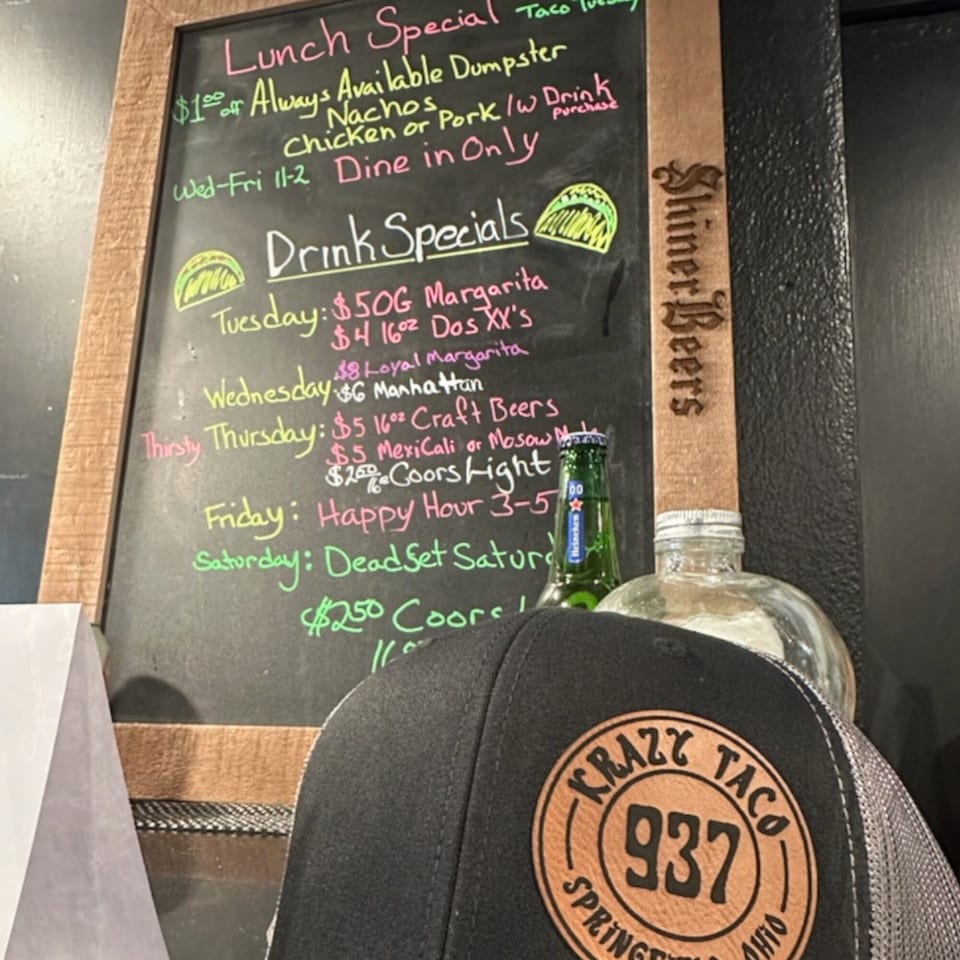 Lunch Special Taco Tuesday
$1.00 off Always Available Dumpster
Nachos
Chicken or Pork /w Drink
purchase
Wed-Fri 11-2 Dine in Only
Drink Specials
Tuesday: $5 OG Margarita
$4 16oz Dos XX's
$8 Loyal Margarita
Wednesday: $6 Manhattan
Thirsty Thursday: $5 16oz Craft Beers
$5 MexiCali or Mosow
$2.50 16oz Coors Light
Friday: Happy Hour 3-5
Saturday: DeadSet Satur
$2.50 Coors
Shiner Beers
00
Heineken
KRAZY TACO
937
SPRINGFIELD, OHIO